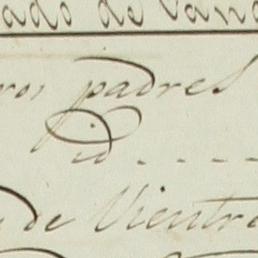 ado de Vand
ros padres
id - - - -
de Vientre